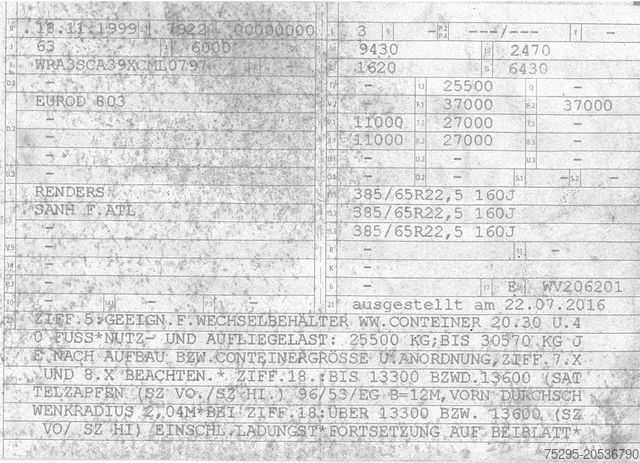 18.11.1999 7922 00000000
63 6000
WRA3SCA39XCML0797 -
-
EUROD 803
-
-
-
RENDERS
SANH F.ATL
-
-
-
-
- - -
L 3 9 - P.2 P.4 ---/--- T -
9430 19 2470
1620 G 6430
- 13 25500 Q -
- F.1 37000 F.2 37000
11000 7.2 27000 7.3 -
11000 8.2 27000 8.3 -
- U.2 - U.3 -
- O.2 - S.1 - S.2 -
385/65R22,5 160J
385/65R22,5 160J
385/65R22,5 160J
R - 11 -
K -
6 - 17 E 16 WV206201
21 ausgestellt am 22.07.2016
ZIFF.5:GEEIGN.F.WECHSELBEHÄLTER WW.CONTEINER 20.30 U.4
0 FUSS*NUTZ- UND AUFLIEGELAST: 25500 KG;BIS 30570 KG J
E NACH AUFBAU BZW.CONTEINERGRÖSSE U ANORDNUNG,ZIFF.7.X
UND 8.X BEACHTEN.* ZIFF.18.:BIS 13300 BZWD.13600 (SAT
TELZAPFEN (SZ VO./SZ HI.) 96/53/EG B=12M,VORN DURCHSCH
WENKRADIUS 2,04M*BEI ZIFF.18:ÜBER 13300 BZW. 13600 (SZ
VO/ SZ HI) EINSCHL.LADUNGST*FORTSETZUNG AUF BEIBLATT*
75295-20536790